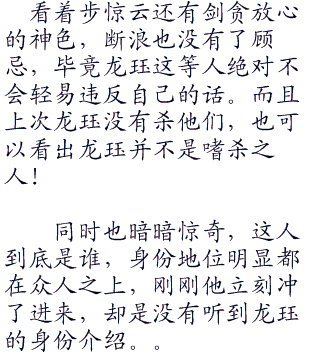 看着步惊云还有剑贪放心
的神色，断浪也没有了顾
忌，毕竟龙珏这等人绝对不
会轻易违反自己的话。而且
上次龙珏没有杀他们，也可
以看出龙珏并不是嗜杀之
人！
同时也暗暗惊奇，这人
到底是谁，身份地位明显都
在众人之上，刚刚他立刻冲
了进来，却是没有听到龙珏
的身份介绍。。